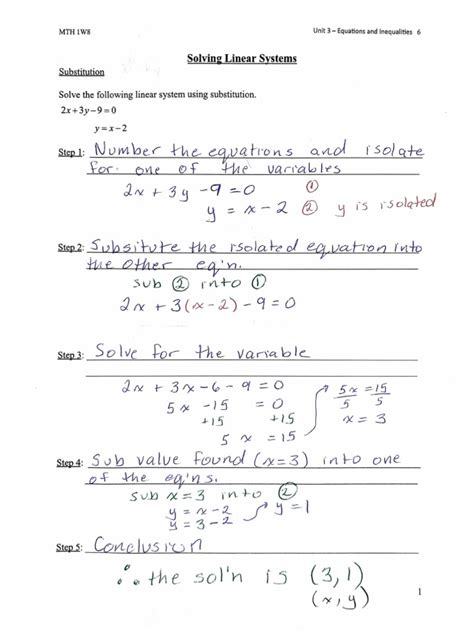 MTH 1W8 Unit 3 – Equations and Inequalities 6
Solving Linear Systems
Substitution
Solve the following linear system using substitution.
2x+3y−9=0
y=x−2
Step 1: Number the equations and isolate
for one of the variables
2x + 3y -9 = 0 ①
y = x - 2 ② y is isolated
Step 2: Subsitute the isolated equation into
the other eq'n.
sub ② into ①
2x + 3(x-2) - 9 = 0
Step 3: Solve for the variable
2x + 3x - 6 - 9 = 0
5x -15 = 0
+15 +15
5x = 15
5x = 15
5 5
x = 3
Step 4: Sub value found (x=3) into one
of the eq'ns.
sub x=3 into ②
y = x-2
y = 3-2
y = 1
Step 5: Conclusion
∴ the sol'n is (3,1)
(x,y)
1